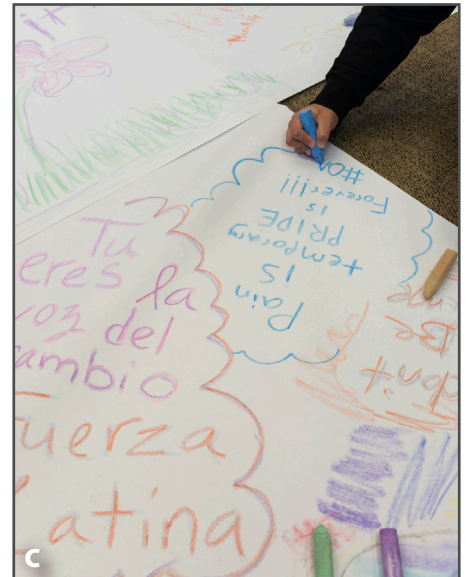 Tu
eres la
voz del
cambio
Fuerza
Latina
Pain
IS
temporary
PRIDE
is
Forever!!!
don't
Be
C